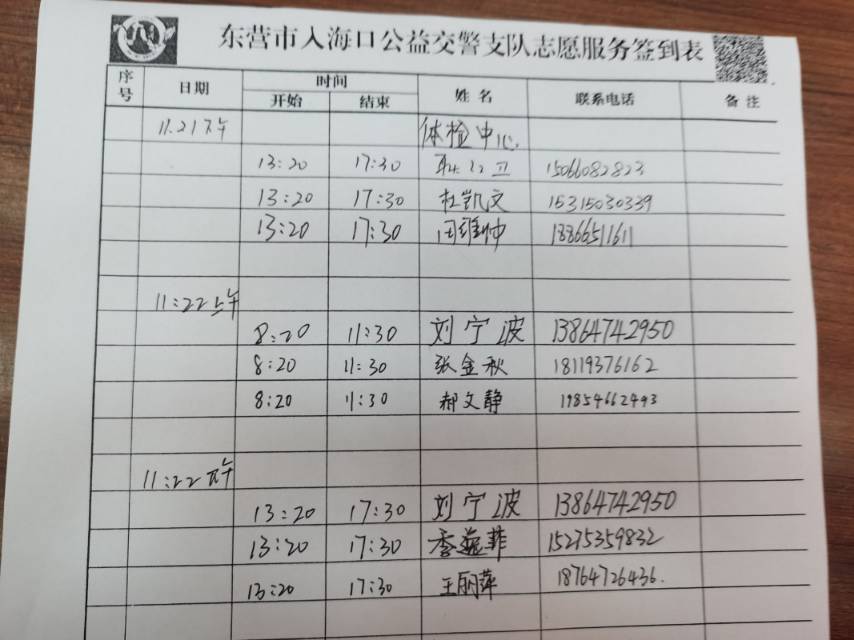 东营市入海口公益交警支队志愿服务签到表
序号 日期 时间 姓名 联系电话 备注
开始 结束
11.21下午 体检中心
13:20 17:30 15066082823
13:20 17:30 杜凯文 15315030339
13:20 17:30 周维帅 18866511611
11:22上午
8:20 11:30 刘宁波 13864742950
8:20 11:30 张金秋 18119376162
8:20 11:30 郝文静 19854662493
11:22下午
13:20 17:30 刘宁波 13864742950
13:20 17:30 李逸菲 15275359832
13:20 17:30 王丽萍 18764726436